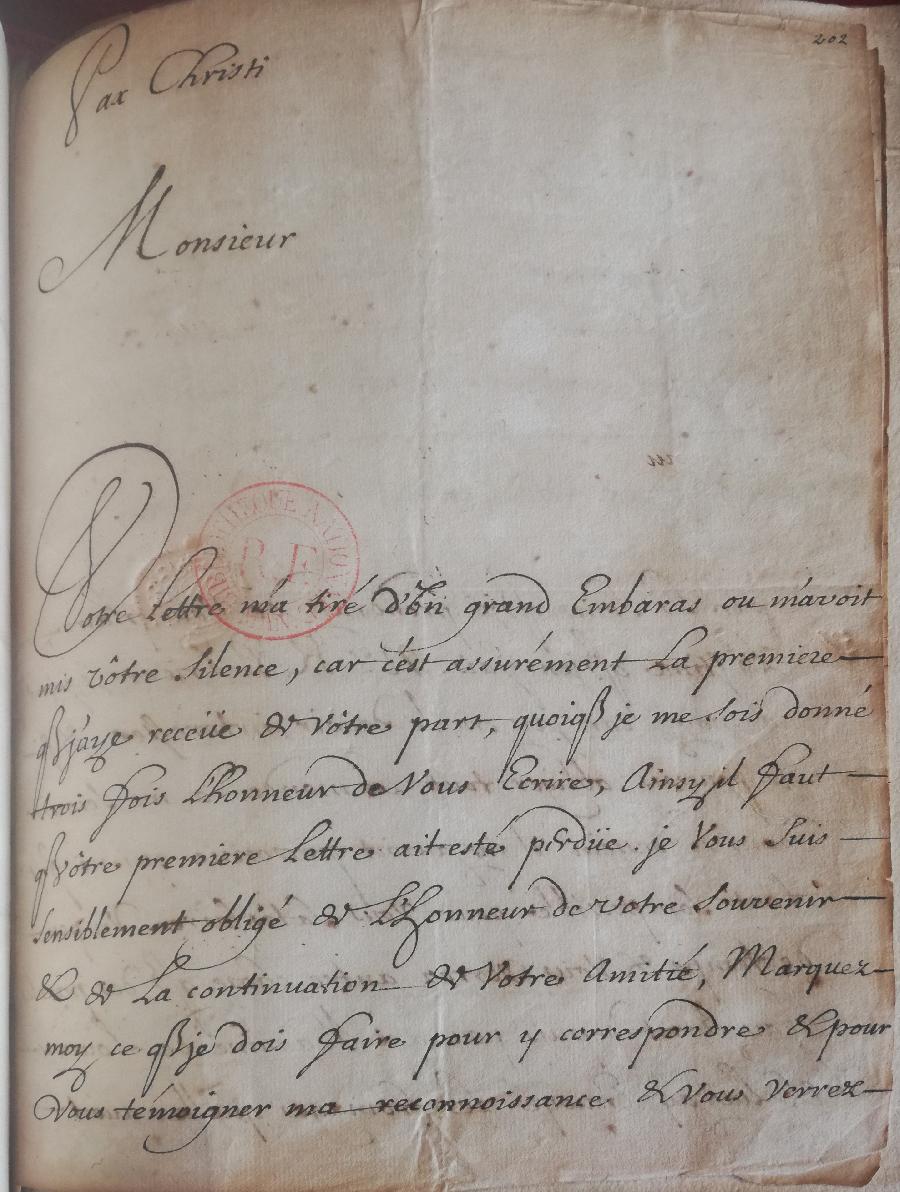 202
Pax Christi
Monsieur
BIBLIOTHEQUE NATIONALE
R.F
Votre lettre m'a tiré d'ún grand Embaras ou m'avoit
mis vôtre silence, car c'est assurément La premiere
qß j'aye receüe de vôtre part, quoiqß je me sois donné
trois fois L'honneur de Vous Ecrire, Ainsy il faut
qß vôtre premiere Lettre ait esté perdüe. je Vous suis
sensiblement obligé de L'honneur de votre souvenir
& de La continuation de Votre Amitié, Marquez
moy ce qß je dois faire pour y correspondre & pour
Vous témoigner ma reconnoissance & vous verrez